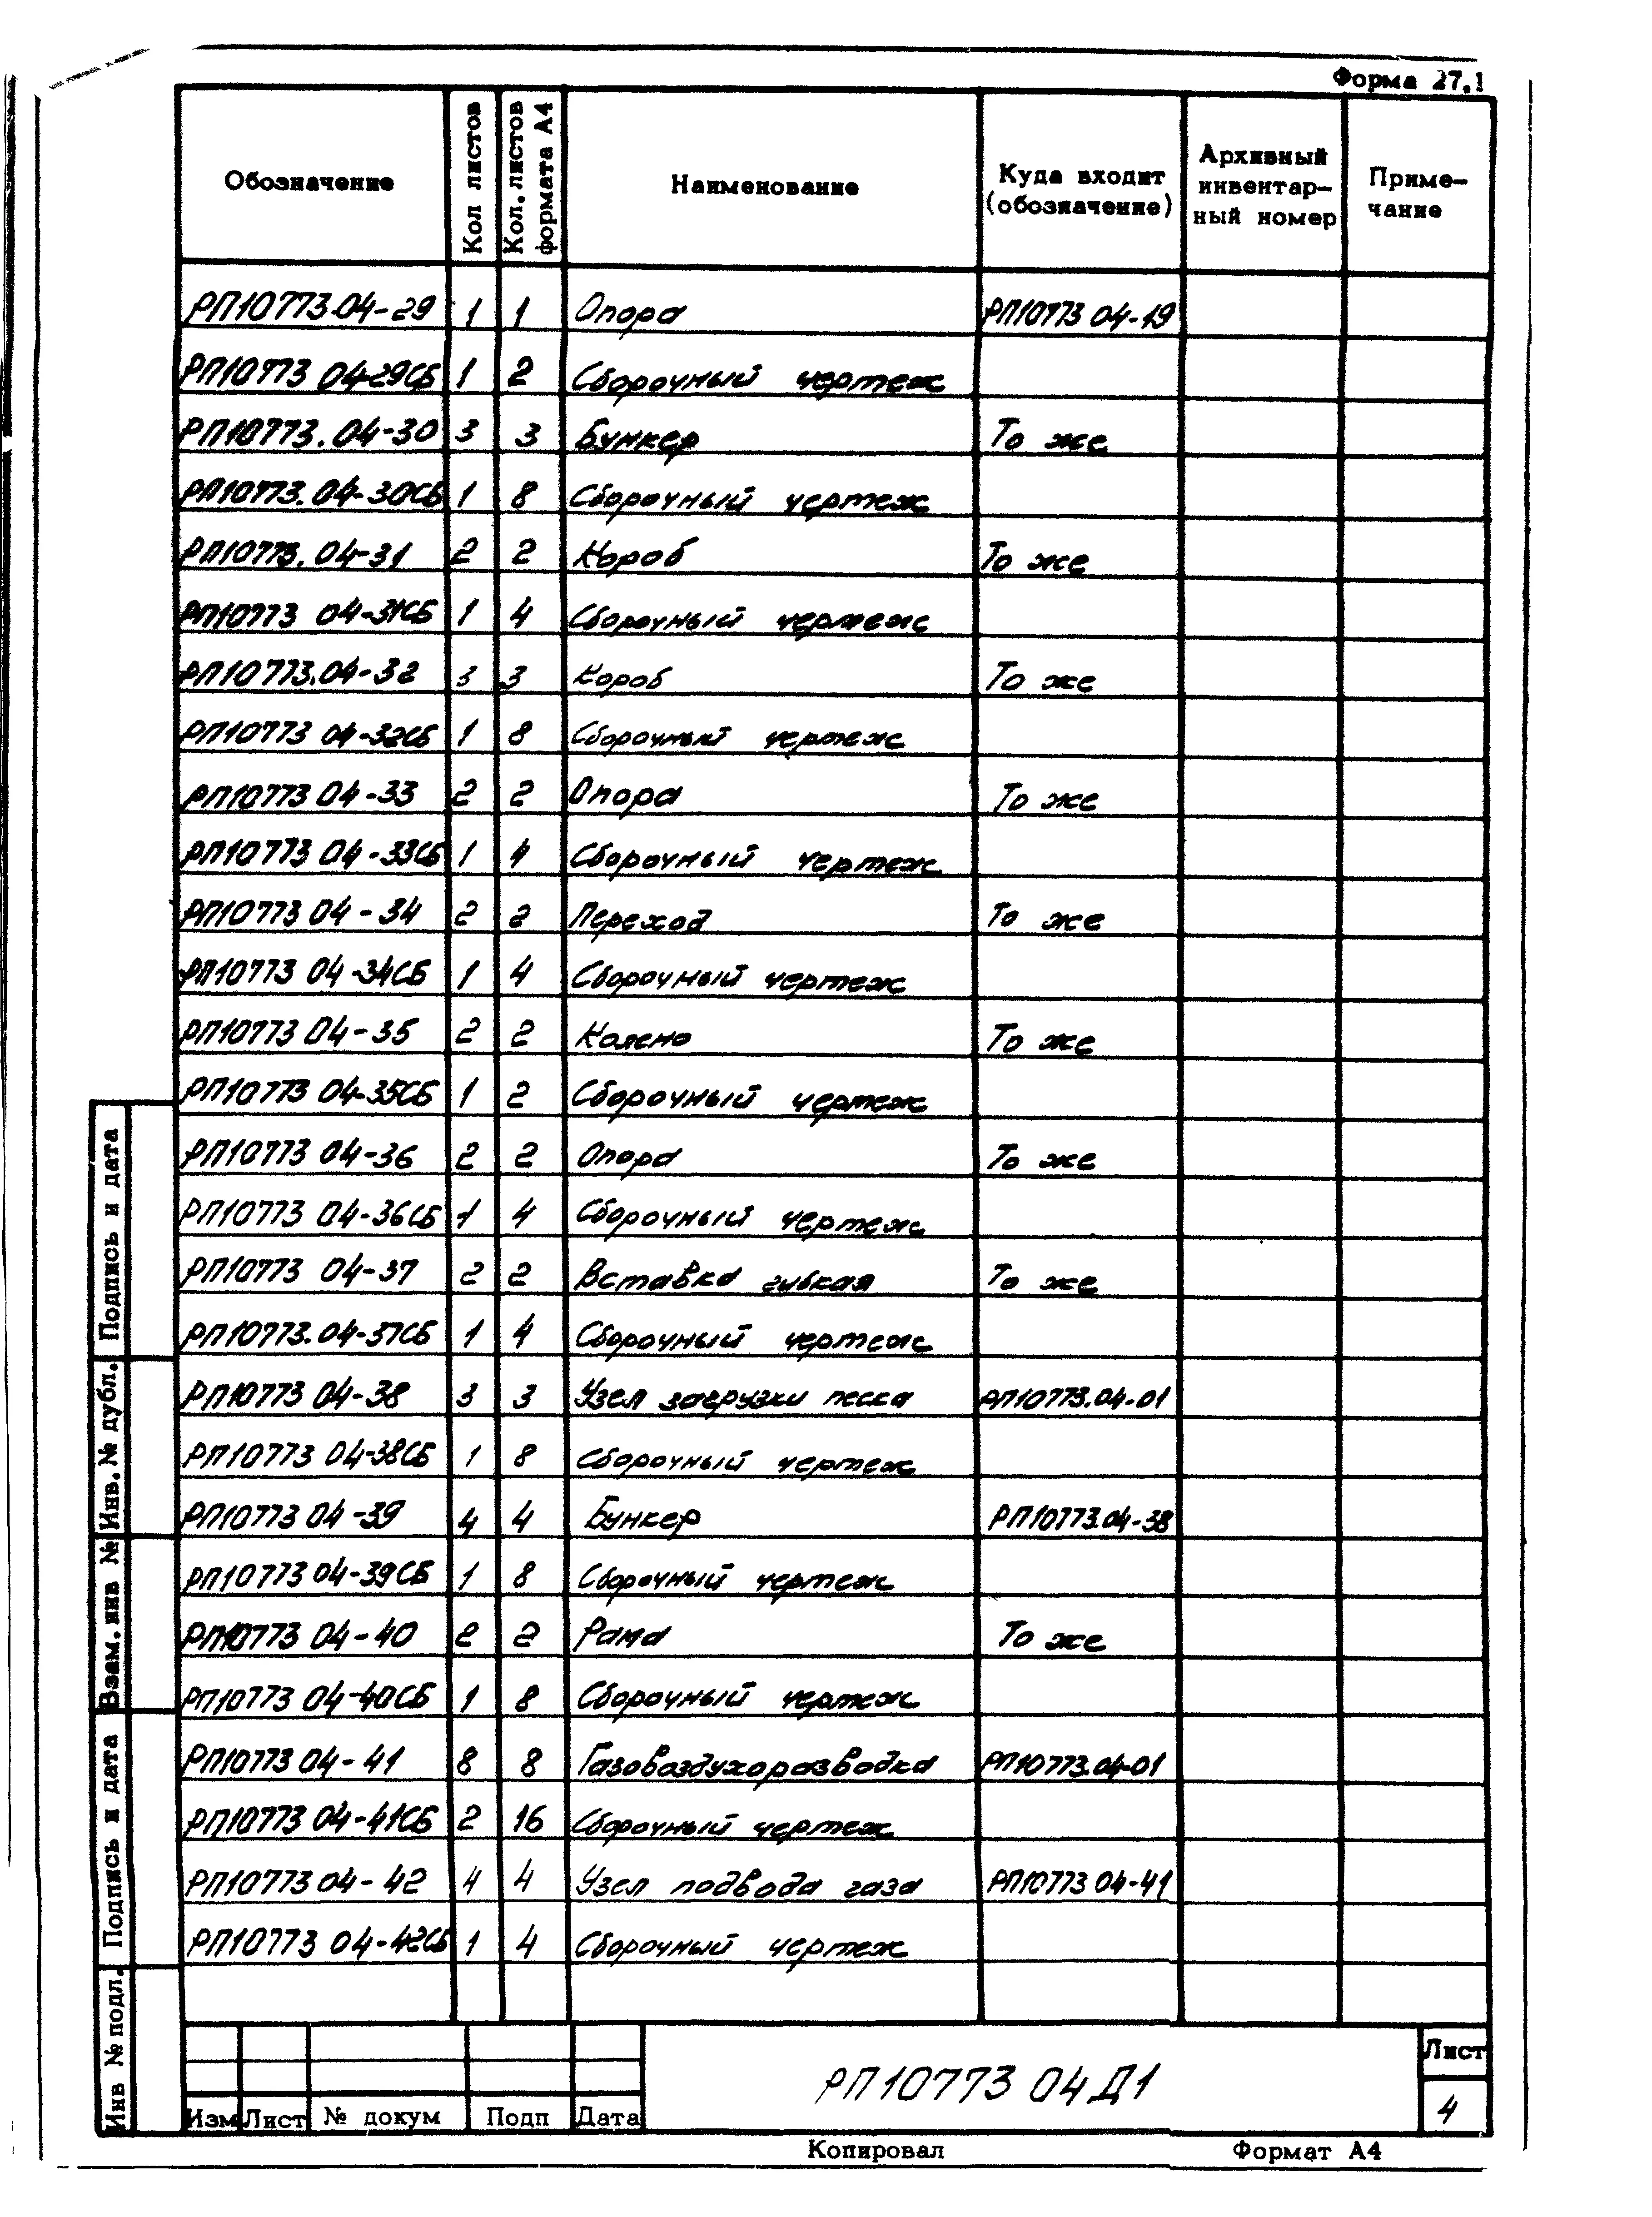 Форма 27.1
Обозначение Кол листов Кол. листов формата А4 Наименование Куда входит (обозначение) Архивный инвентар-ный номер Приме-чание
РП10773.04-29 1 1 Опора РП10773 04-19
РП10773 04-29СБ 1 2 Сборочный чертеж
РП10773.04-30 3 3 Бункер То же
РП10773.04-30СБ 1 8 Сборочный чертеж
РП10773.04-31 2 2 Короб То же
РП10773 04-31СБ 1 4 Сборочный чертеж
РП10773.04-32 3 3 Короб То же
РП10773 04-32СБ 1 8 Сборочный чертеж
РП10773 04-33 2 2 Опора То же
РП10773 04-33СБ 1 4 Сборочный чертеж
РП10773 04-34 2 2 Переход То же
РП10773 04-34СБ 1 4 Сборочный чертеж
РП10773 04-35 2 2 Колено То же
РП10773 04-35СБ 1 2 Сборочный чертеж
РП10773 04-36 2 2 Опора То же
РП10773 04-36СБ 1 4 Сборочный чертеж
РП10773 04-37 2 2 Вставка гибкая То же
РП10773.04-37СБ 1 4 Сборочный чертеж
РП10773 04-38 3 3 Узел загрузки песка РП10773.04-01
РП10773 04-38СБ 1 8 Сборочный чертеж
РП10773 04-39 4 4 Бункер РП10773.04-38
РП10773 04-39СБ 1 8 Сборочный чертеж
РП10773 04-40 2 2 Рама То же
РП10773 04-40СБ 1 8 Сборочный чертеж
РП10773 04-41 8 8 Газовоздухоразводка РП10773.04-01
РП10773 04-41СБ 2 16 Сборочный чертеж
РП10773 04-42 4 4 Узел подвода газа РП10773 04-41
РП10773 04-42СБ 1 4 Сборочный чертеж
Подпись и дата
Инв. № дубл.
Взам. инв №
Подпись и дата
Инв № подл.
Изм Лист № докум Подп Дата
РП10773 04Д1
Лист
4
Копировал Формат А4